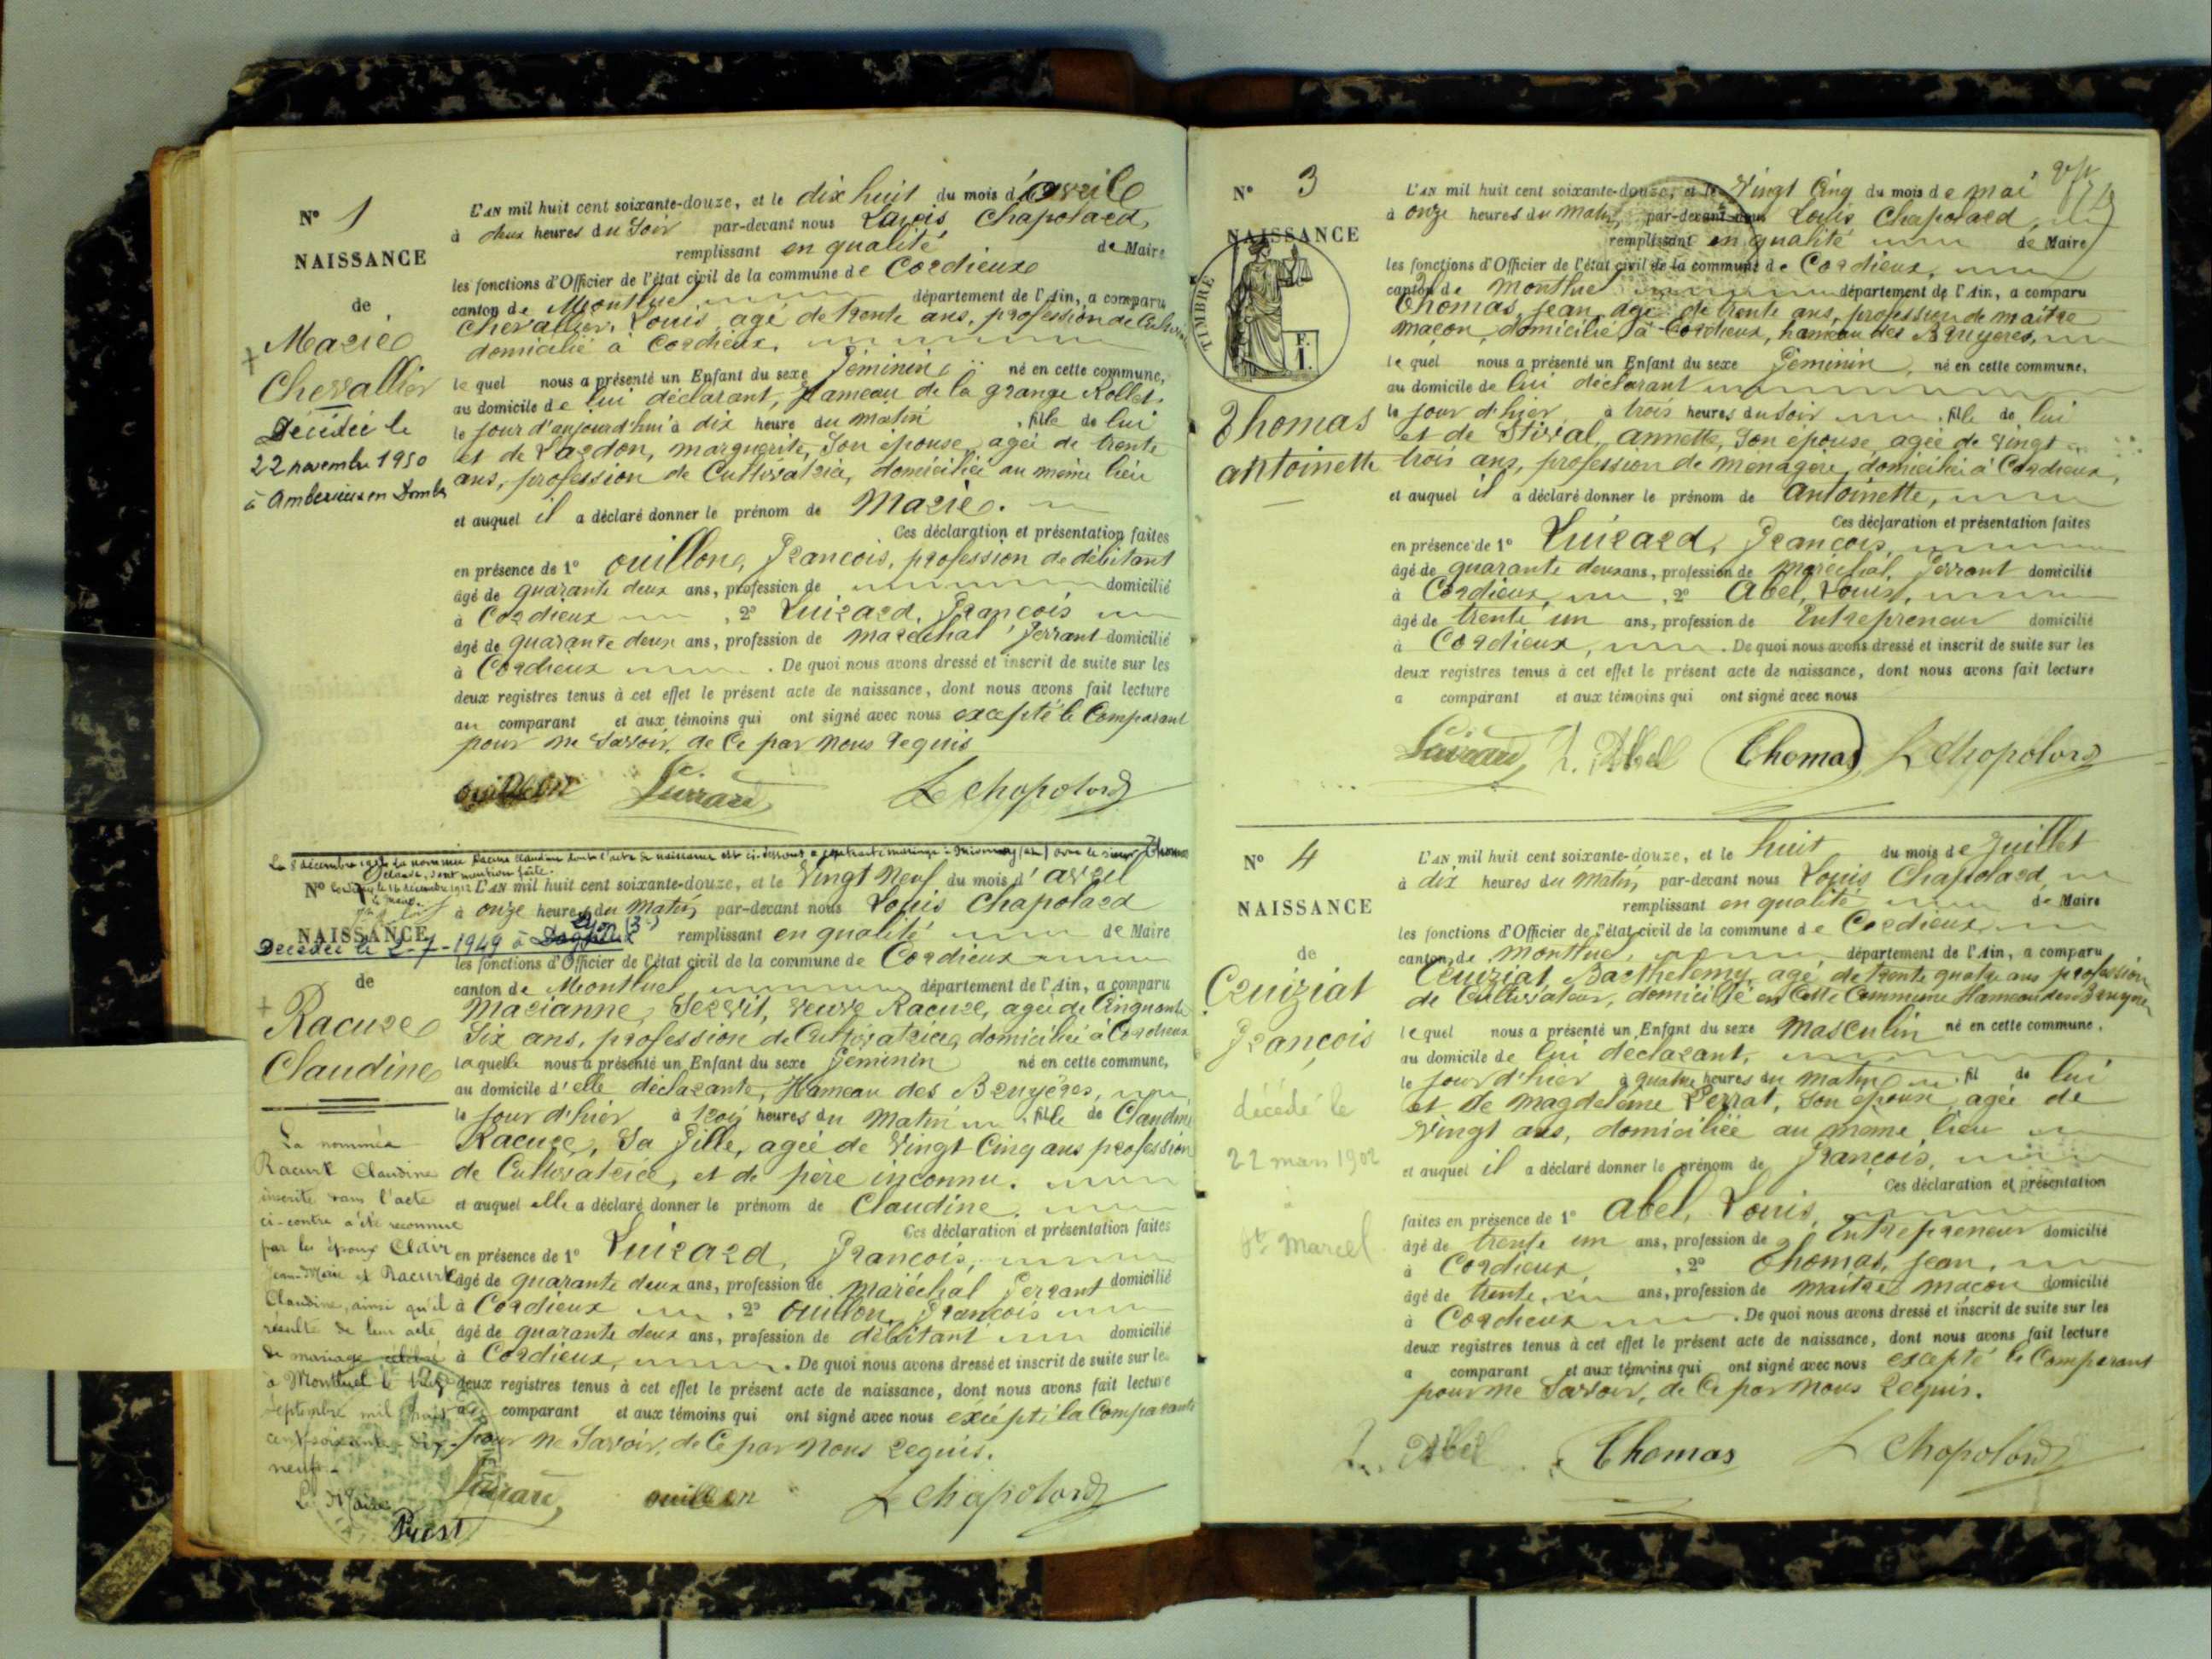 N° 1
NAISSANCE
de
Marie
Chevallier
Décédée le
22 novembre 1950
à Amberieux en Dombes
L'AN mil huit cent soixante-douze, et le dix huit du mois d'avril
à deux heures du Soir par-devant nous Louis Chapolard,
remplissant en qualité de Maire
les fonctions d'Officier de l'état civil de la commune de Cordieux
canton de Montluel département de l'Ain, a comparu
Chevallier, Louis, agé de trente ans, profession de Cultivateur
domicilié à Cordieux,
lequel nous a présenté un Enfant du sexe féminin né en cette commune,
au domicile de lui déclarant, hameau de la grange Rollet.
le jour d'aujourd'hui à dix heure du matin fille de lui
et de Lardon, marguerite, Son épouse, agée de trente
ans, profession de Cultivatrice, domiciliée au même lieu
et auquel il a déclaré donner le prénom de Marie.
Ces déclaration et présentation faites
en présence de 1° ouillon, François, profession de débitant
âgé de quarante deux ans, profession de domicilié
à Cordieux , 2° Luirard, François
âgé de quarante deux ans, profession de maréchal ferrant domicilié
à Cordieux . De quoi nous avons dressé et inscrit de suite sur les
deux registres tenus à cet effet le présent acte de naissance, dont nous avons fait lecture
au comparant et aux témoins qui ont signé avec nous excepté le Comparant
pour ne Savoir, de Ce par nous requis
ouillon L Chapolard
N°
NAISSANCE
Décédée le 2-7-1949 à
de
Racure
Claudine
La nommée
Racure Claudine
inscrite dans l'acte
ci-contre a été reconnue
par les époux Clair
Jean-Marie et Racure
Claudine, ainsi qu'il
résulte de leur acte
de mariage célébré
à Montluel le
Septembre mil huit
cent soixante-dix-
neuf.
Le Maire
L'AN mil huit cent soixante-douze, et le Vingt Neuf du mois d'avril
à onze heures du Matin, par-devant nous Louis Chapolard
remplissant en qualité de Maire
les fonctions d'Officier de l'état civil de la commune de Cordieux
canton de Montluel, département de l'Ain, a comparu
Marianne, Servit, veuve Racure, agée de Cinquante
Six ans, profession de Cultivatrice, domiciliée à Cordieux
laquelle nous a présenté un Enfant du sexe féminin né en cette commune,
au domicile d'elle déclarante, Hameau des Bruyères,
le jour d'hier à trois heures du Matin fille de Claudine
Racure, Sa fille, agée de Vingt Cinq ans profession
de Cultivatrice, et de père inconnu.
et auquel elle a déclaré donner le prénom de Claudine.
Ces déclaration et présentation faites
en présence de 1° Luirard, François,
âgé de quarante deux ans, profession de maréchal ferrant domicilié
à Cordieux , 2° ouillon, François
âgé de quarante deux ans, profession de débitant domicilié
à Cordieux, . De quoi nous avons dressé et inscrit de suite sur les
deux registres tenus à cet effet le présent acte de naissance, dont nous avons fait lecture
a comparant et aux témoins qui ont signé avec nous excepté la Comparante
pour ne Savoir, de Ce par nous requis.
ouillon L Chapolard
N° 3
NAISSANCE
TIMBRE
F.
1.
Thomas
antoinette
L'AN mil huit cent soixante-douze, et le Vingt Cinq du mois de mai
à onze heures du matin, par-devant nous Louis Chapolard,
remplissant en qualité de Maire
les fonctions d'Officier de l'état civil de la commune de Cordieux,
canton de Montluel département de l'Ain, a comparu
Thomas, jean, agé de trente ans, profession de maitre
maçon, domicilié à Cordieux, hameau des Bruyeres,
lequel nous a présenté un Enfant du sexe féminin, né en cette commune,
au domicile de lui déclarant
le jour d'hier à trois heures du Soir fille de lui
et de Stival, annette, Son épouse, agée de vingt
trois ans, profession de ménagère, domiciliée à Cordieux,
et auquel il a déclaré donner le prénom de antoinette,
Ces déclaration et présentation faites
en présence de 1° Luirard, François,
âgé de quarante deux ans, profession de maréchal, ferrant domicilié
à Cordieux, , 2° Abel, Louis,
âgé de trente un ans, profession de Entrepreneur domicilié
à Cordieux, . De quoi nous avons dressé et inscrit de suite sur les
deux registres tenus à cet effet le présent acte de naissance, dont nous avons fait lecture
a comparant et aux témoins qui ont signé avec nous
L. Abel Thomas L Chapolard
N° 4
NAISSANCE
de
Cruiziat
François
décédé le
22 mars 1902
à
St Marcel
L'AN mil huit cent soixante-douze, et le huit du mois de Juillet
à dix heures du matin, par-devant nous Louis Chapolard
remplissant en qualité de Maire
les fonctions d'Officier de l'état civil de la commune de Cordieux,
canton de Montluel, département de l'Ain, a comparu
Cruiziat Barthelemy, agé, de trente quatre ans profession
de Cultivateur, domicilié en Cette Commune Hameau des Bruyeres
lequel nous a présenté un Enfant du sexe Masculin né en cette commune,
au domicile de lui déclarant,
le jour d'hier à quatre heures du matin fil de lui
et de Magdeleine Perrat, Son épouse, agée de
Vingt ans, domiciliée au même lieu
et auquel il a déclaré donner le prénom de François,
Ces déclaration et présentation
faites en présence de 1° Abel, Louis,
âgé de trente un ans, profession de Entrepreneur domicilié
à Cordieux, , 2° Thomas, jean,
âgé de trente, ans, profession de maitre maçon domicilié
à Cordieux . De quoi nous avons dressé et inscrit de suite sur les
deux registres tenus à cet effet le présent acte de naissance, dont nous avons fait lecture
a comparant et aux témoins qui ont signé avec nous excepté le Comparant
pour ne Savoir, de Ce par nous requis.
L. Abel Thomas L Chapolard